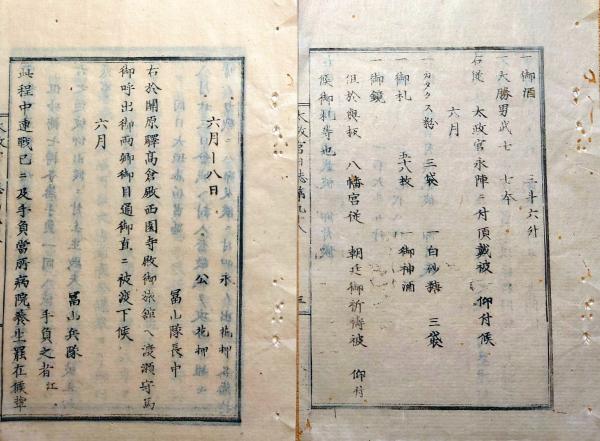 一御酒　三斗六升
一大勝男武士　七十本
右従　太政官永陣ニ付頂戴被　仰付候
六月
一カタクス粉　三袋　一白砂糖　三袋
一御札　五十八枚　一御神酒
一御鏡
但於奥坂　八幡宮従　朝廷御祈祷被　仰付
候御札等也
太政官日誌第九十八
三
六月十八日
冨山隊長中
右於關原驛高倉殿西園寺殿御旅館へ渡瀬守馬
御呼出御両卿御目通御直ニ被渡下候
六月
冨山兵隊
手負之者江
無程中連戰已ニ及手負當所病院養生罷在候輩